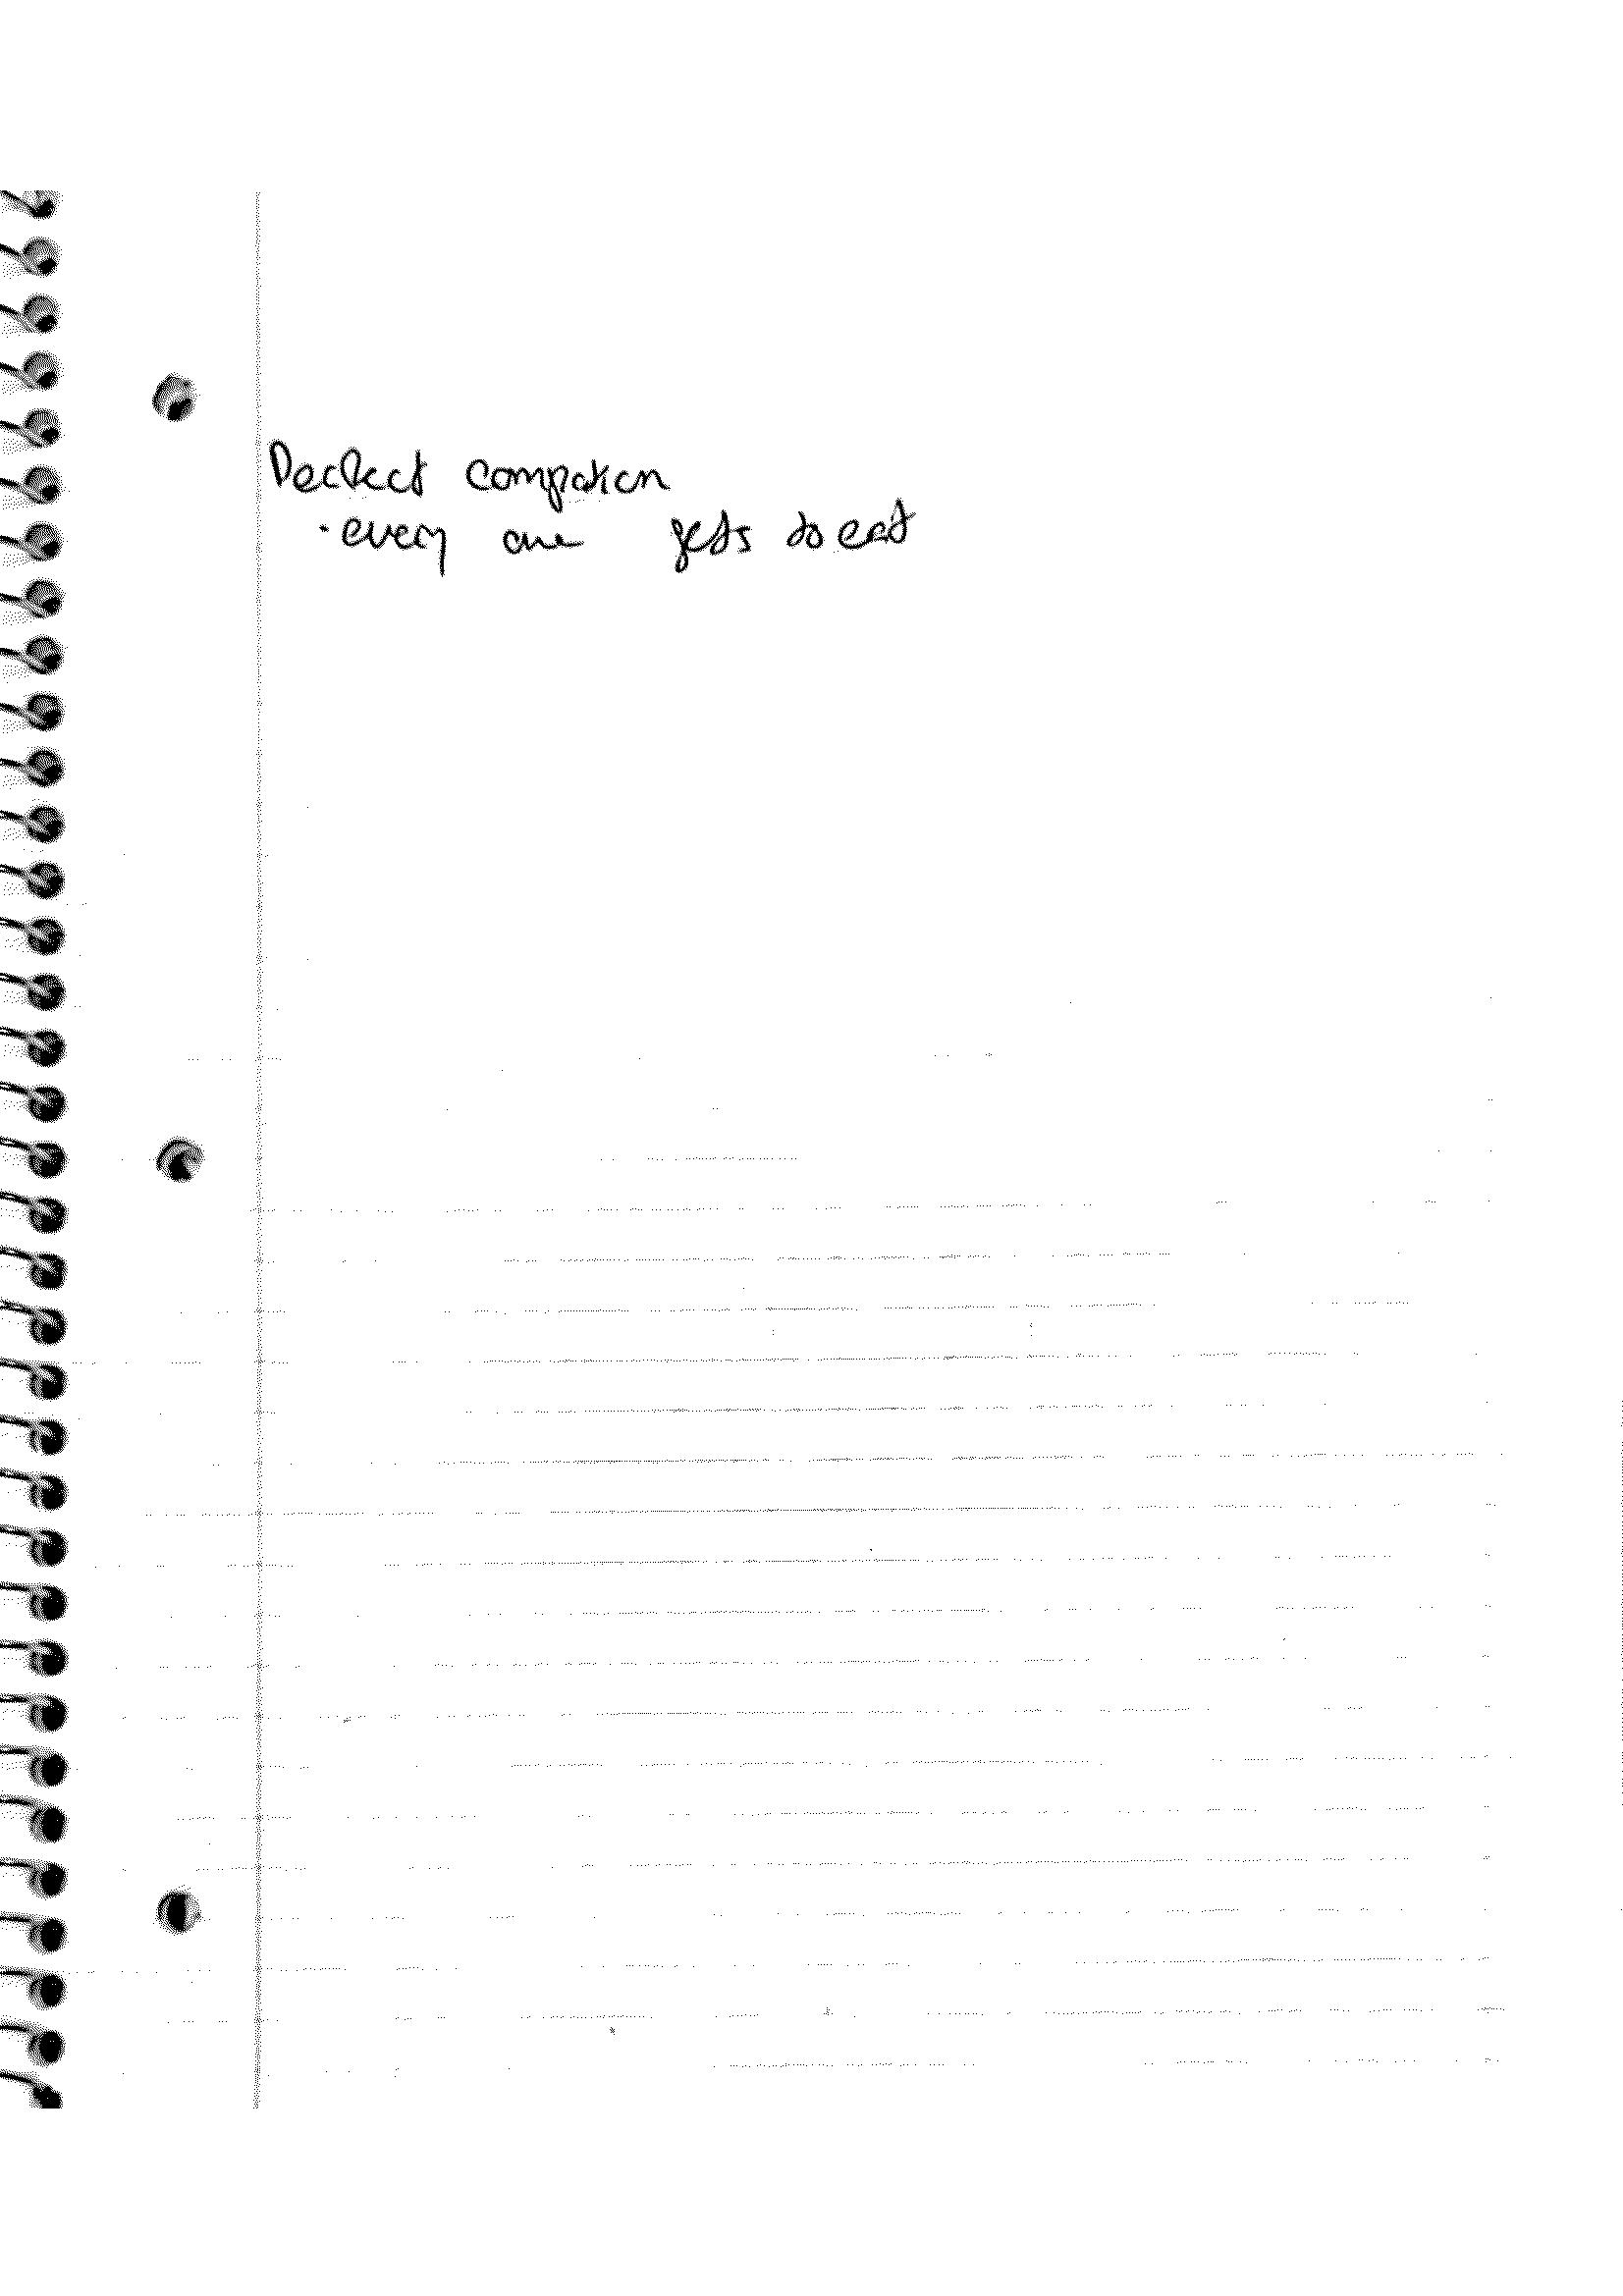 Perfect compation
· every one gets to eat